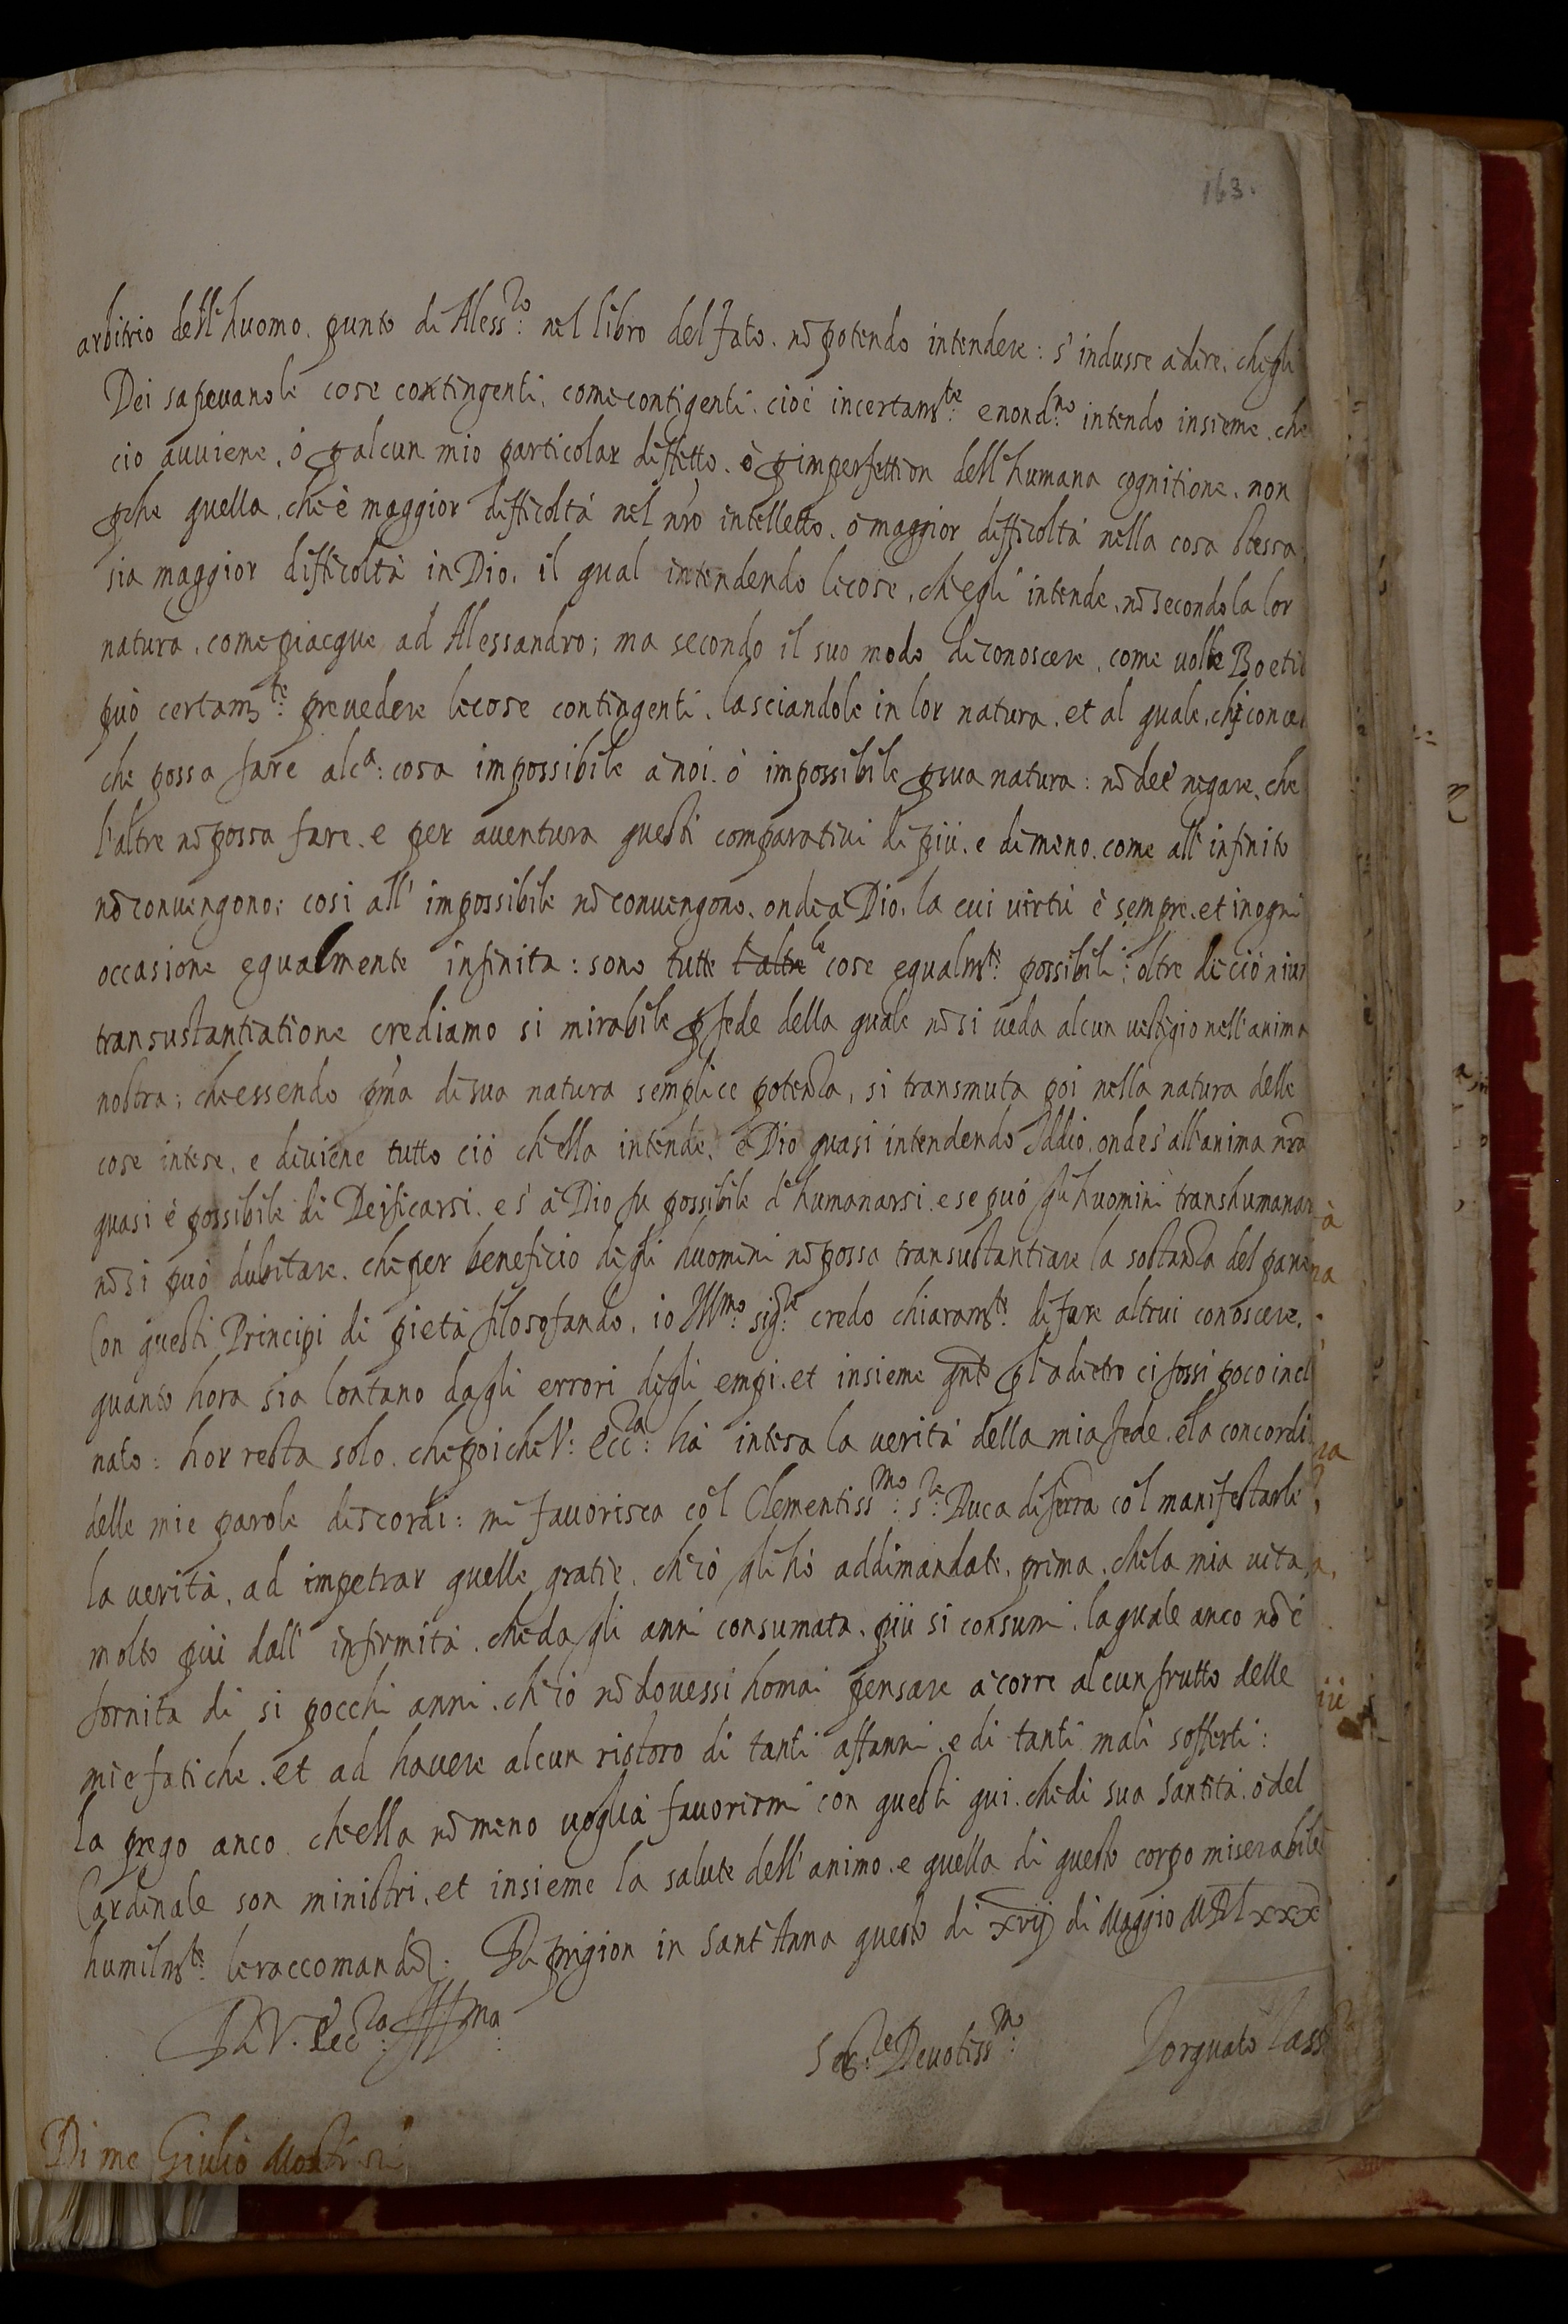 163.
arbitrio dell'huomo. punto da Aless.ro nel libro del fato. nō potendo intendere: s'indusse a dire, che gli
Dei sapevano le cose contingenti, come contigenti. cioè incertam.te e nond.no intendo insieme, che
cio avviene, ò ꝑ alcun mio particolar difetto. ò ꝑ imperfettion dell'humana cognitione. non
ꝑche quella, che è maggior difficoltà nel nrō intelletto. ò maggior difficoltà nella cosa stessa,
sia maggior difficoltà in Dio. il qual intendendo le cose, ch'egli intende, nō secondo la lor
natura, come piacque ad Alessandro; ma secondo il suo modo di conoscere, come volle Boetio
può certam.te prevedere le cose contingenti, lasciandole in lor natura. et al quale, chi conce
che possa fare alc.a cosa impossibile à noi. ò impossibile ꝑ sua natura: nō dee negare, che
l'altre nō possa fare. e per aventura questi comparativi di più. e di meno. come all'infinito
nō convengono: cosi all'impossibile nō convengono. onde à Dio, la cui virtù è sempre. et in ogni
occasione egualmente infinita: sono tutte l'altre le cose egualm.te possibili: oltre di ciò niun
transustantiatione crediamo si mirabile ꝑ fede della quale nō si veda alcun vestigio nell'anima
nostra; che essendo pm̄a di sua natura semplice potenza, si transmuta poi nella natura delle
cose intese, e diviene tutto ciò ch'ella intende, è Dio quasi intendendo Iddio. onde s'all'anima nrā
quasi è possibile di Deificarsi. e s'à Dio fu possibile d'humanarsi. e se può gli huomini transhumanar
nō si può dubitare. che per beneficio degli huomini nō possa transustantiare la sostanza del pane
Con questi Principi di pietà filosofando, io Ill.mo sig.re credo chiaram.te di fare altrui conoscere,
quanto hora sia lontano dagli errori degli empi. et insieme qnto ꝑ l'adietro ci fossi poco incl
nato: hor resta solo. che poiche V: Ecc.za hà intesa la verità della mia fede. e la concordia
delle mie parole discordi: mi favorisca co'l Clementiss.mo s.re Duca di ferra co'l manifestarle
la verità, ad impetrar quelle gratie, ch'iò gli hò addimandate, prima, che la mia vita
molto più dall'infirmità. che da gli anni consumata. più si consumi. la quale anco nō è
fornita di si pocchi anni. ch'iò nō dovessi homai pensare à corre alcun frutto delle
mie fatiche. et ad havere alcun ristoro di tanti affanni. e di tanti mali sofferti:
la prego anco. che ella nō meno voglia favorirmi con questi qui. che di sua Santità. ò del
Cardinale son ministri. et insieme la salute dell'animo. e quella di questo corpo miserabile
humilm.te le raccomando. Di prigion in Sant'Anna questo di xvij di Maggio MDLxxx
Di V. Ecc.za Ill.ma
Ser.re Devotiss.mo Torquato Tass
Di me Giulio Mosti